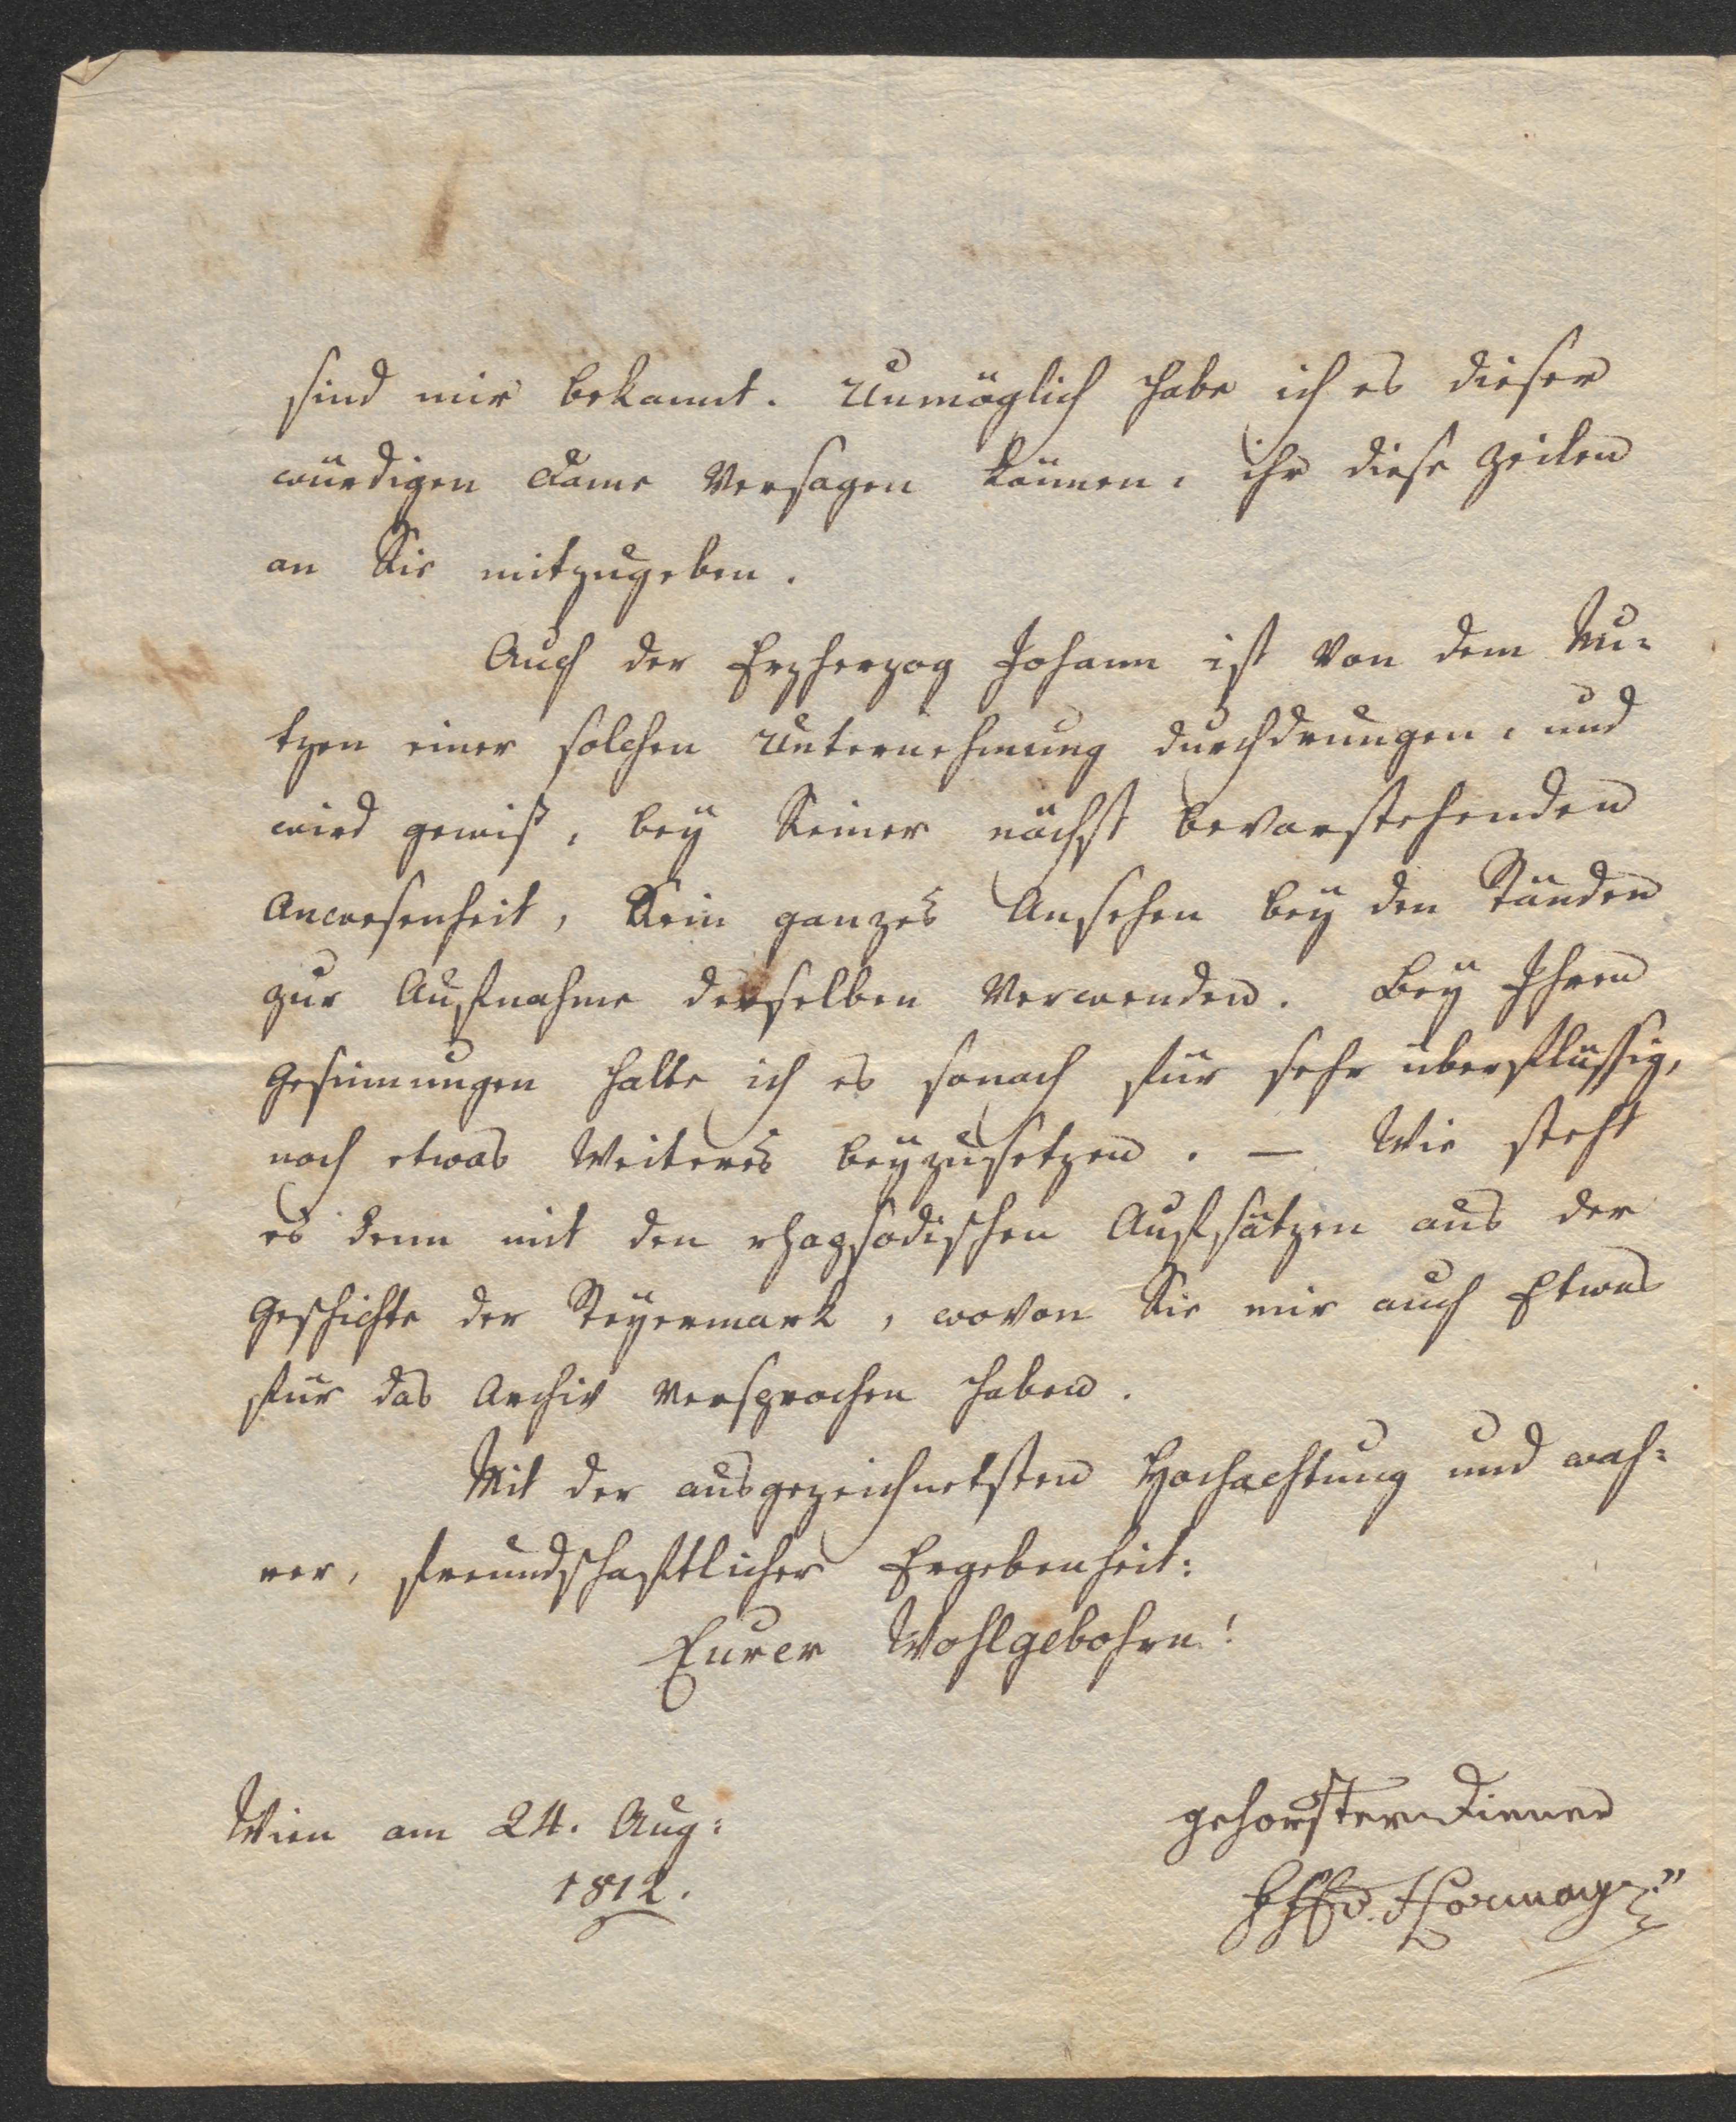 sind mir bekannt. Unmöglich habe ich es dieser
würdigen Dame versagen können, ihr diese Zeilen
an Sie mitzugeben.
Auch der Erzherzog Johann ist von dem Nu-
tzen einer solchen Unternehmung durchdrungen, und
wird gewiß, bey Seiner nächst bevorstehenden
Anwesenheit, Sein ganzes Ansehen bey den Ständen
zur Aufnahme derselben verwenden. Bey Ihren
Gesinnungen halte ich es sonach für sehr überflüssig,
noch etwas Weiteres beyzusetzen. — Wie steht
es denn mit den rhapsodischen Aufsätzen aus der
Geschichte der Steyermark, wovon Sie mir auch Etwas
für das Archiv versprochen haben.
Mit der ausgezeichnetsten Hochachtung und wah-
rer, freundschaftlicher Ergebenheit:
Eurer Wohlgebohrn!
gehorster Diener
Wien am 24. Aug:
1812.
Hormayr